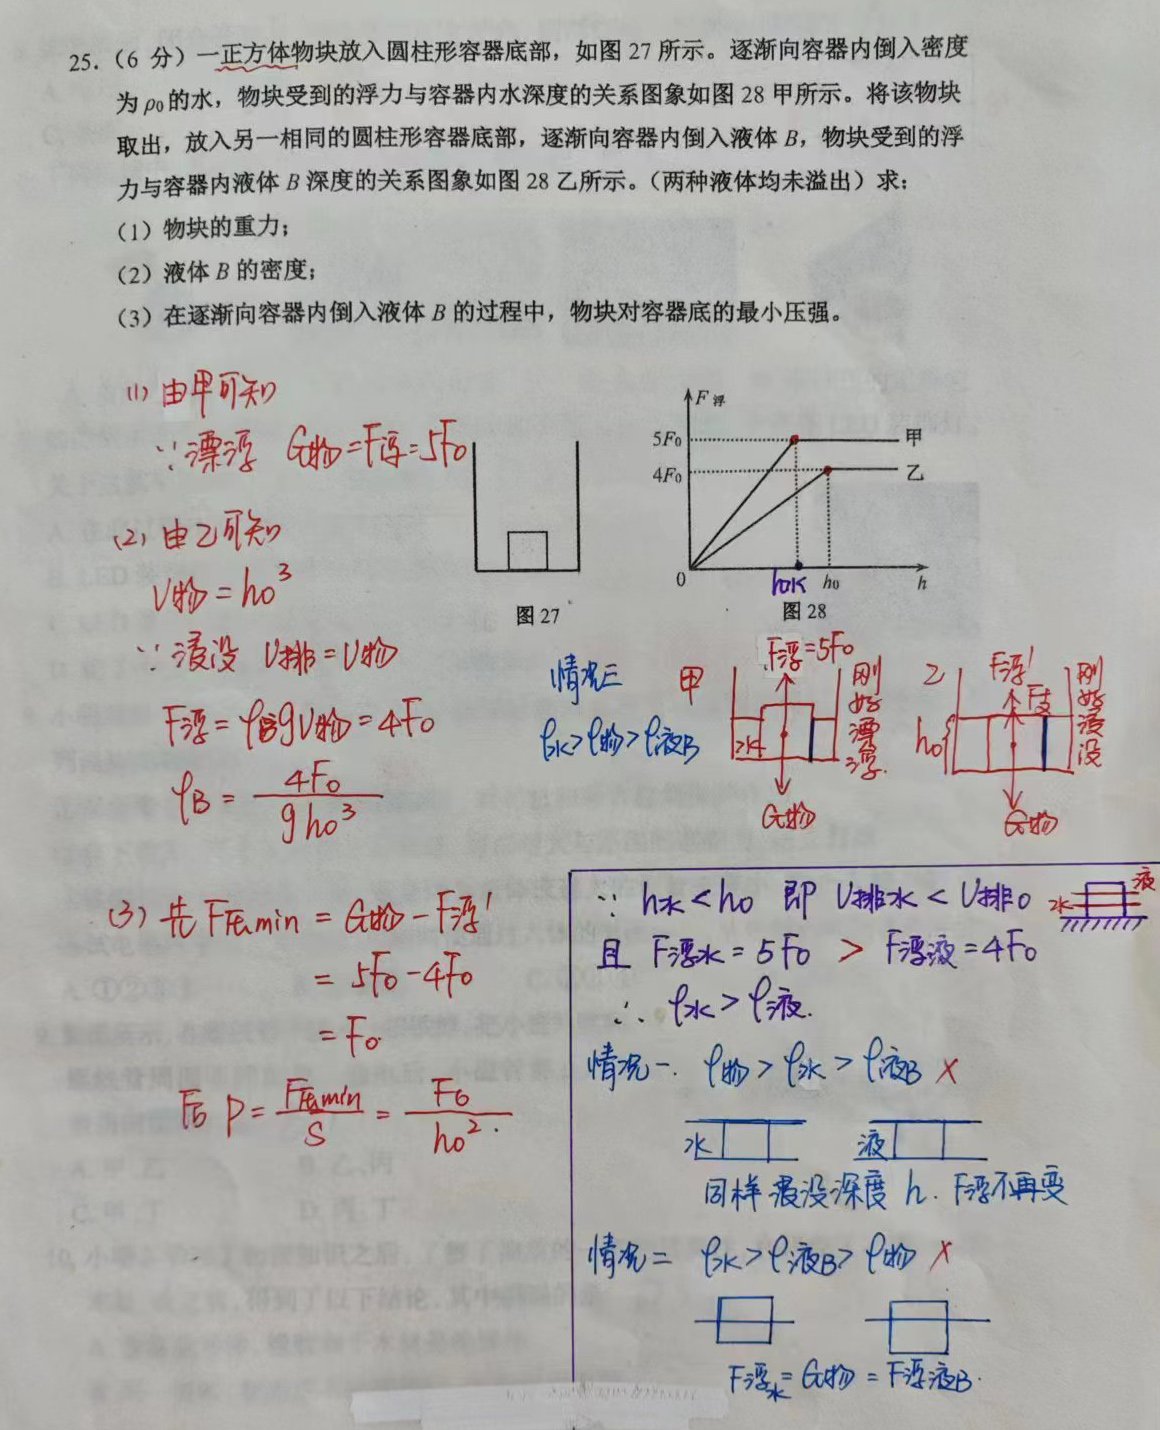 25.（6 分）一正方体物块放入圆柱形容器底部，如图 27 所示。逐渐向容器内倒入密度
为 ρ₀ 的水，物块受到的浮力与容器内水深度的关系图象如图 28 甲所示。将该物块
取出，放入另一相同的圆柱形容器底部，逐渐向容器内倒入液体 B，物块受到的浮
力与容器内液体 B 深度的关系图象如图 28 乙所示。（两种液体均未溢出）求：
（1）物块的重力；
（2）液体 B 的密度；
（3）在逐渐向容器内倒入液体 B 的过程中，物块对容器底的最小压强。
(1) 由甲可知
∵漂浮 G物=F浮=5F₀
(2) 由乙可知
V物=h₀³
∵浸没 V排=V物
F浮=ρBgV物=4F₀
ρB=4F₀/gh₀³
(3) 先 F压min = G物-F浮'
= 5F₀-4F₀
= F₀
后 P=F压min/S=F₀/h₀².
图 27
F浮
5F₀
甲
4F₀
乙
0
h水
h₀
h
图 28
情况三
ρ水>ρ物>ρ液B
甲
F浮=5F₀
水
刚好漂浮.
G物
乙
F浮'
F支
h₀
刚好浸没
G物
∵ h水<h₀ 即 V排水<V排0
液
水
且 F浮水=5F₀ > F浮液=4F₀
∴ ρ水>ρ液.
情况一. ρ物>ρ水>ρ液B ×
水
液
同样浸没深度 h. F浮不再变
情况二 ρ水>ρ液B>ρ物 ×
F浮水=G物=F浮液B.